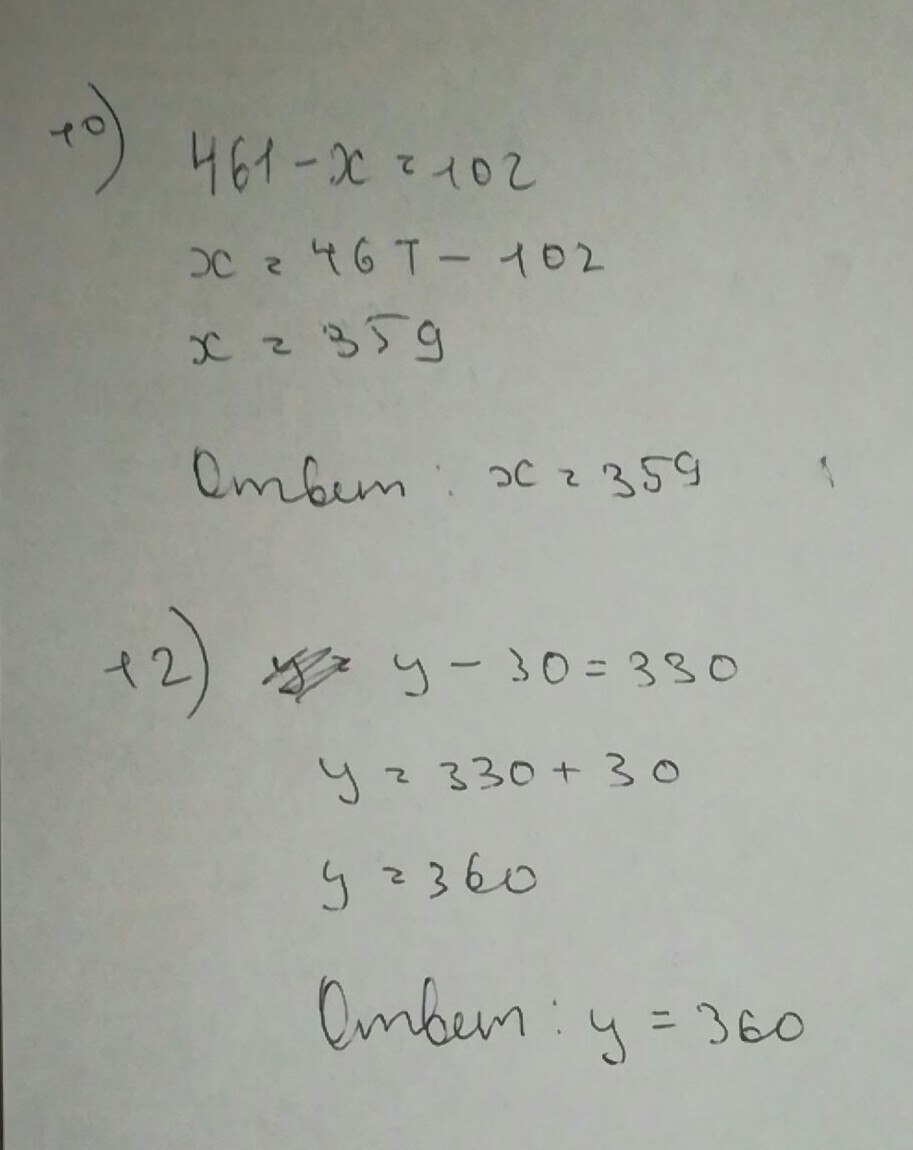 10) 461 - x = 102
x = 461 - 102
x = 359
Ответ: x = 359
12) y - 30 = 330
y = 330 + 30
y = 360
Ответ: y = 360